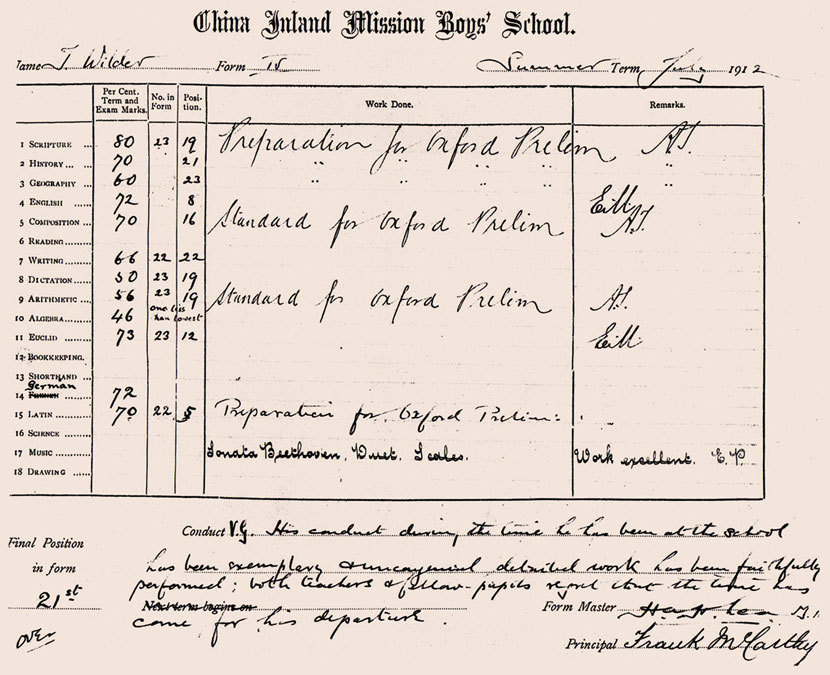 China Inland Mission Boys' School.
Name T. Wilder Form IV Summer Term, July 1912
Per Cent. Term and Exam Marks. No. in Form Position. Work Done. Remarks.
1 SCRIPTURE 80 23 19 Preparation for Oxford Prelim A.T.
2 HISTORY 70 21 " " " " "
3 GEOGRAPHY 60 23 " " " "
4 ENGLISH 72 8
5 COMPOSITION 70 16 Standard for Oxford Prelim A.T.
6 READING
7 WRITING 66 22 22
8 DICTATION 50 23 19
9 ARITHMETIC 56 23 19 Standard for Oxford Prelim A.T.
10 ALGEBRA 46 one less than lowest
11 EUCLID 73 23 12
12 BOOKKEEPING.
13 SHORTHAND
14 German 72
15 LATIN 70 22 5 Preparation for Oxford Prelim:
16 SCIENCE
17 MUSIC Sonata Beethoven, Duet. Scales. Work excellent. E.P.
18 DRAWING
Final Position in form 21st
over
Conduct V.G. His conduct during the time he has been at the school
has been exemplary & uncongenial detailed work has been faithfully
performed; both teachers & fellow-pupils regret that the time has
Next term begins on
come for his departure.
Form Master
Principal Frank McCarthy